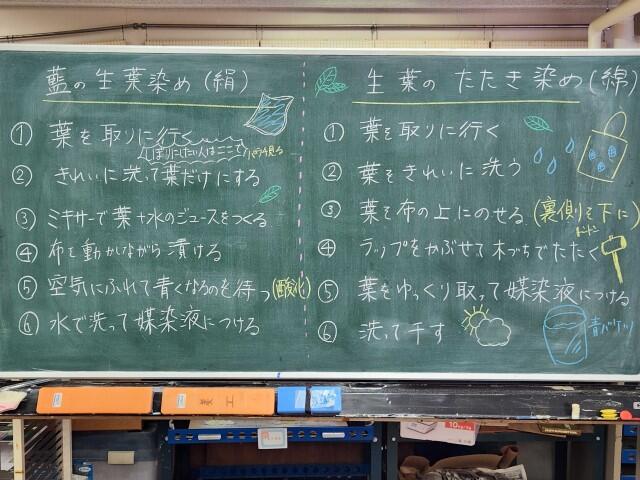 藍の生葉染め(絹)
① 葉を取りに行く
しぼりにしたい人はここで
② きれいに洗って葉だけにする
③ ミキサーで葉+水のジュースをつくる
④ 布を動かしながら漬ける
⑤ 空気にふれて青くなるのを待つ(酸化)
⑥ 水で洗って媒染液につける
生葉のたたき染め(綿)
① 葉を取りに行く
② 葉をきれいに洗う
③ 葉を布の上にのせる(裏側を下に)
④ ラップをかぶせて木づちでたたく
トントン
⑤ 葉をゆっくり取って媒染液につける
⑥ 洗って干す
青バケツ